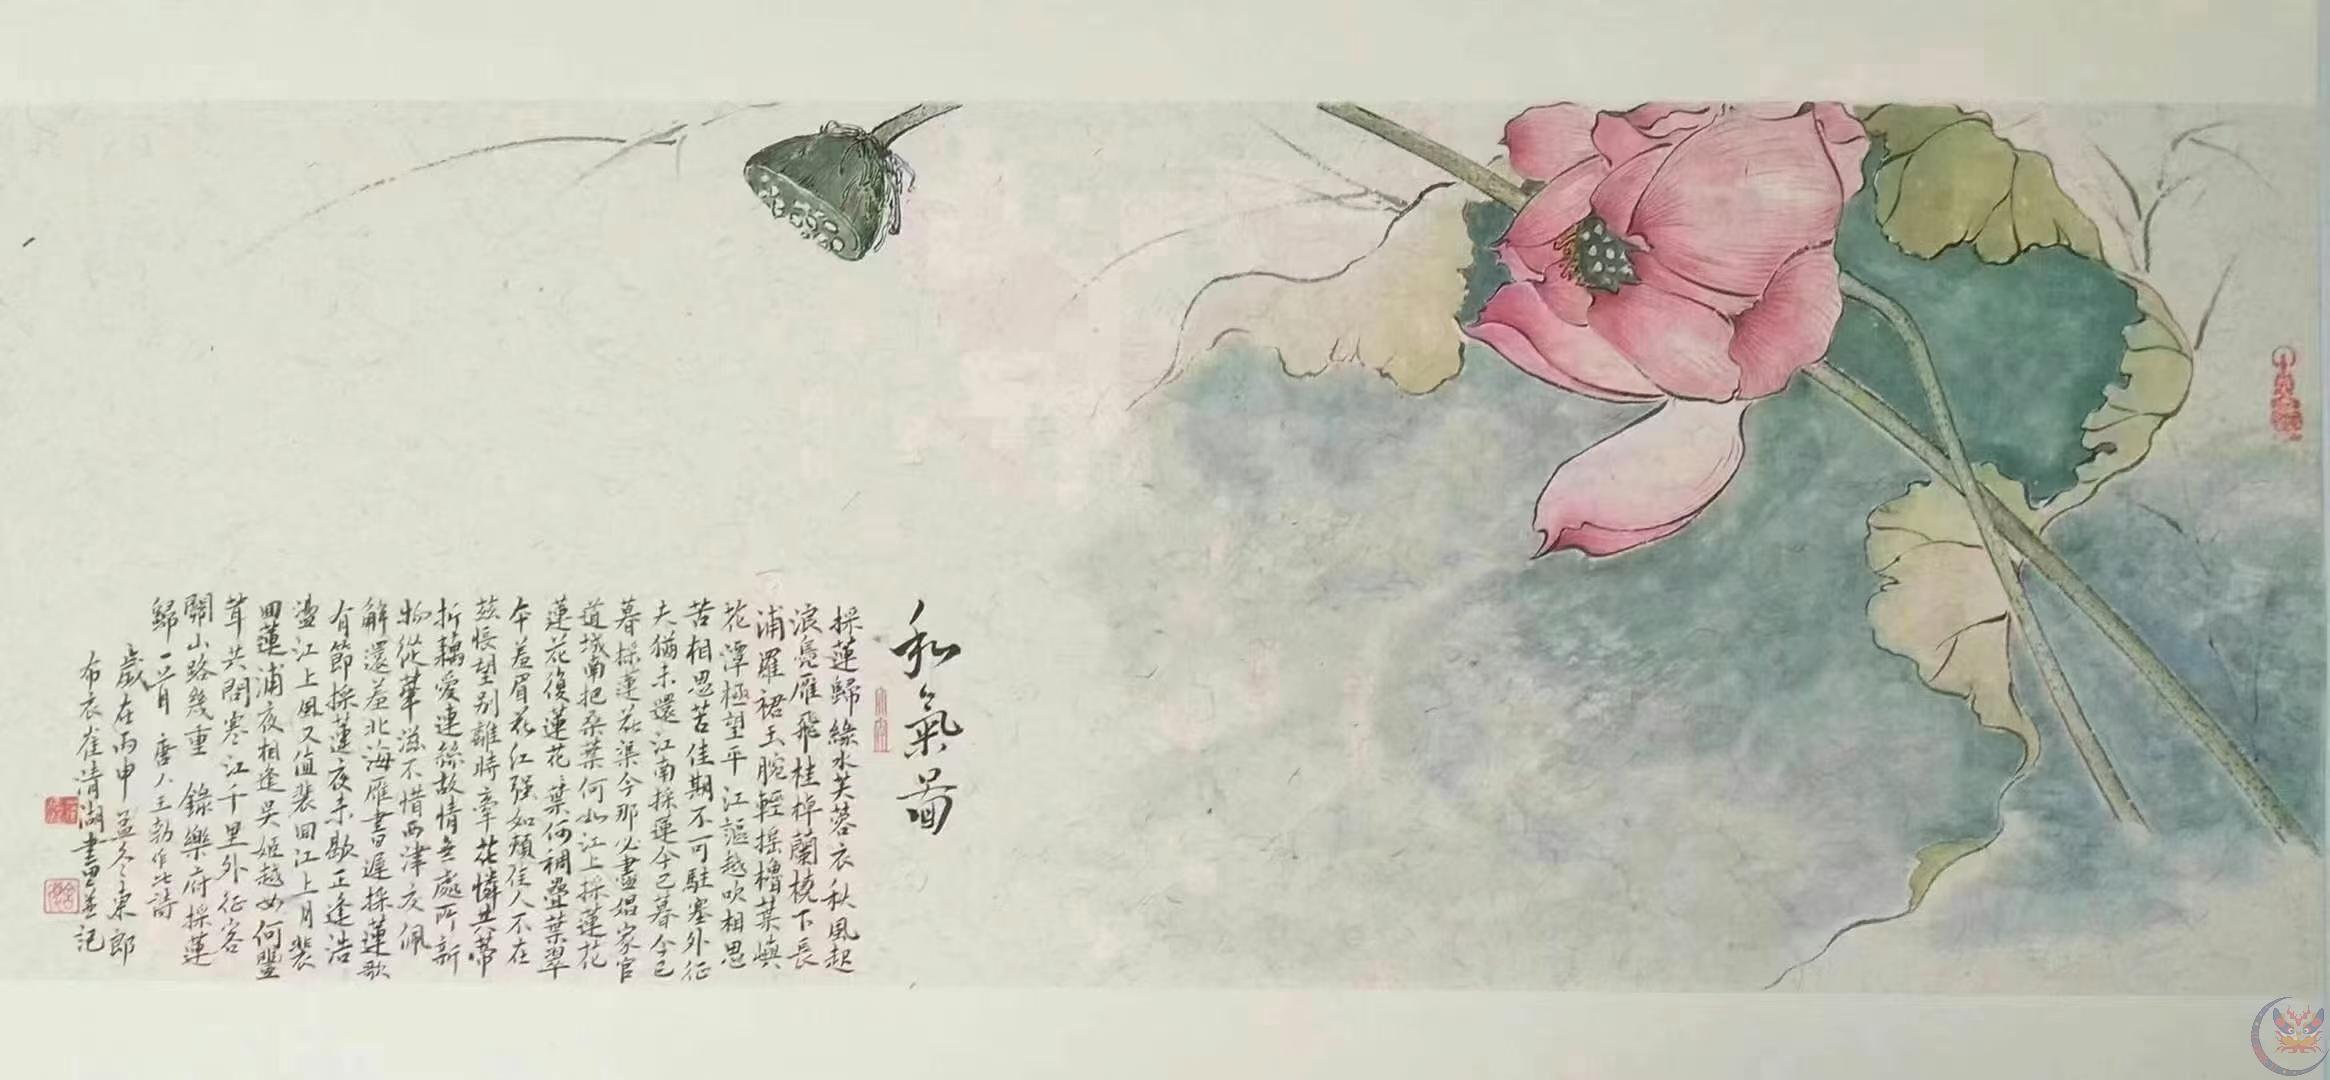 和氣圖
採蓮歸綠水芙蓉衣秋風起
浪鳧雁飛桂棹蘭橈下長
浦羅裙玉腕輕搖櫓葉嶼
花潭極望平江謳越吹相思
苦相思苦佳期不可駐塞外征
夫猶未還江南採蓮今已暮今已
暮採蓮花渠今那必盡倡家官
道城南把桑葉何如江上採蓮花
蓮花復蓮花葉何稠疊葉翠
本羞眉花紅强如頰佳人不在
茲悵望別離時牽花憐共蒂
折藕愛連絲故情無處所新
物從華滋不惜西津交佩
解還羞北海雁書遲採蓮歌
有節採蓮夜未歇正逢浩
盪江上風又值裴回江上月裴
回蓮浦夜相逢吳姬越女何豐
茸共問寒江千里外征客
關山路幾重 錄樂府採蓮
歸一首 唐人王勃作此詩
歲在丙申孟冬東郎
布衣崔清湖畫並記